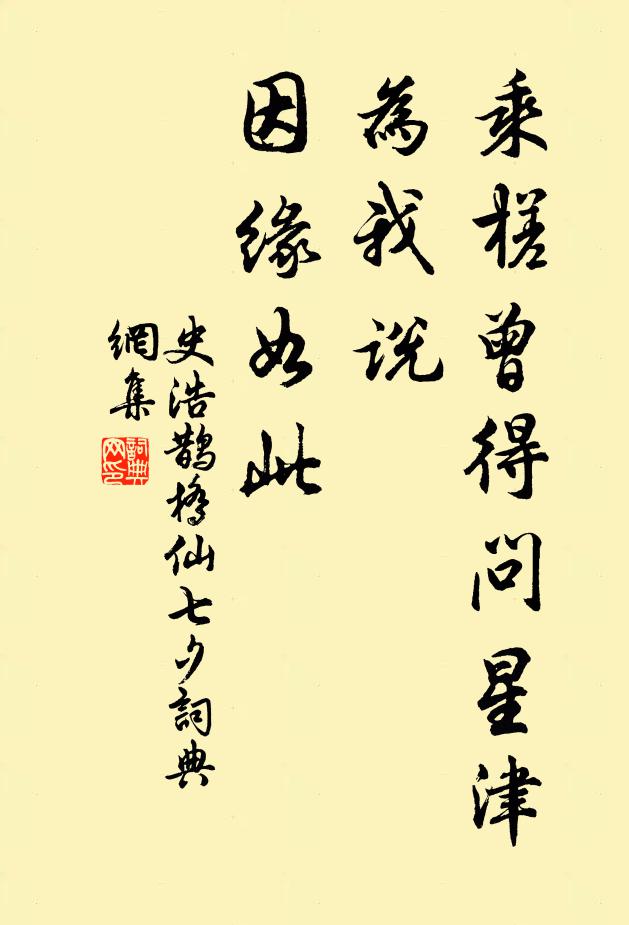 乘槎曾得問星津
為我說
因緣如此
史浩鵲橋仙七夕詞典
網集
詞典網印